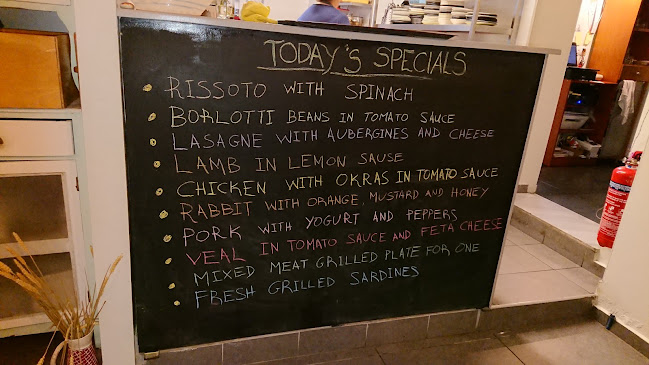 TODAY'S SPECIALS
RISSOTO WITH SPINACH
BORLOTTI BEANS IN TOMATO SAUCE
LASAGNE WITH AUBERGINES AND CHEESE
LAMB IN LEMON SAUSE
CHICKEN WITH OKRAS IN TOMATO SAUCE
RABBIT WITH ORANGE, MUSTARD AND HONEY
PORK WITH YOGURT AND PEPPERS
VEAL IN TOMATO SAUCE AND FETA CHEESE
MIXED MEAT GRILLED PLATE FOR ONE
FRESH GRILLED SARDINES